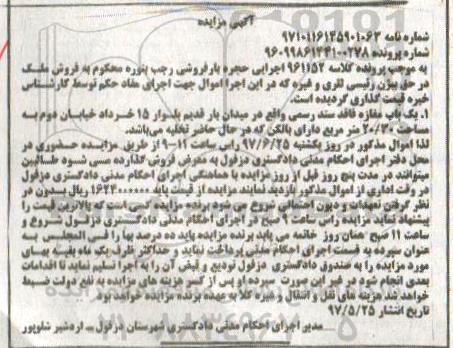 آگهی مزایده
شماره نامه ۹۷۱۰۱۱۶۱۴۵۹۰۱۰۶۳
شماره پرونده ۹۶۰۹۹۸۶۱۴۴۱۰۰۲۷۸
به موجب پرونده کلاسه ۹۶۱۱۵۲ اجرایی حجره بارفروشی رجب بنوره محکوم به فروش ملک
در حق بیژن رئیسی لقری و غیره که در این اجرا اموال جهت اجرای مفاد حکم توسط کارشناس
خبره قیمت گذاری گردیده است.
۱. یک باب مغازه فاقد سند رسمی واقع در میدان بار قدیم بلوار ۱۵ خرداد خیابان دوم به
مساحت ۲۰/۳۰ متر مربع دارای بالکن که در حال حاضر تخلیه می‌باشد.
لذا اموال مذکور در روز یکشنبه ۹۷/۶/۲۵ راس ساعت ۱۱-۹ از طریق مزایده حضوری در
محل دفتر اجرای احکام مدنی دادگستری دزفول به معرض فروش گذارده می شود طالبین
میتوانند در مدت پنج روز قبل از روز مزایده با هماهنگی اجرای احکام مدنی دادگستری دزفول
در وقت اداری از اموال مذکور بازدید نمایند مزایده از قیمت پایه ۱۶۲۴۰۰۰۰۰۰ ریال بدون در
نظر گرفتن تعهدات و دیون احتمالی شروع می شود برنده مزایده کسی است که بالاترین قیمت را
پیشنهاد نماید مزایده راس ساعت ۹ صبح در اجرای احکام مدنی دادگستری دزفول شروع و
ساعت ۱۱ صبح همان روز خاتمه می یابد برنده مزایده باید ده درصد بها را فی المجلس به
عنوان سپرده به قسمت اجرای احکام مدنی پرداخت نماید و حداکثر ظرف یک ماه بقیه بهای
مورد مزایده را به صندوق دادگستری دزفول تودیع و قبض آن را به اجرا تسلیم نماید تا اقدامات
بعدی انجام شود در غیر این صورت سپرده او پس از کسر هزینه های مزایده به نفع دولت ضبط
خواهد شد هزینه های نقل و انتقال و غیره کلا به عهده برنده مزایده خواهد بود
تاریخ انتشار ۹۷/۵/۲۵
مدیر اجرای احکام مدنی دادگستری شهرستان دزفول - اردشیر شلوپور